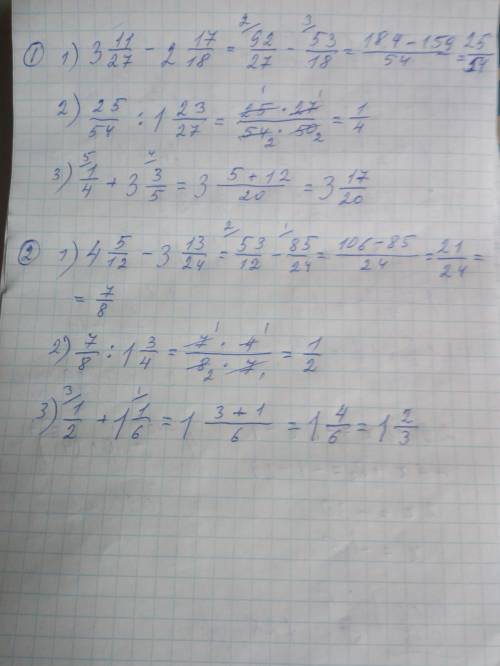 ① 1) 3 11/27 - 2 17/18 = 92/27 ²⁄ - 53/18 ³⁄ = (184-159)/54 = 25/54
2) 25/54 : 1 23/27 = (25 · 27)/(54 · 50) = 1/4
3) 1/4 ⁵⁄ + 3 3/5 ⁴⁄ = 3 (5+12)/20 = 3 17/20
② 1) 4 5/12 - 3 13/24 = 53/12 ²⁄ - 85/24 ¹⁄ = (106-85)/24 = 21/24 =
= 7/8
2) 7/8 : 1 3/4 = (7 · 4)/(8 · 7) = 1/2
3) 1/2 ³⁄ + 1 1/6 ¹⁄ = 1 (3+1)/6 = 1 4/6 = 1 2/3